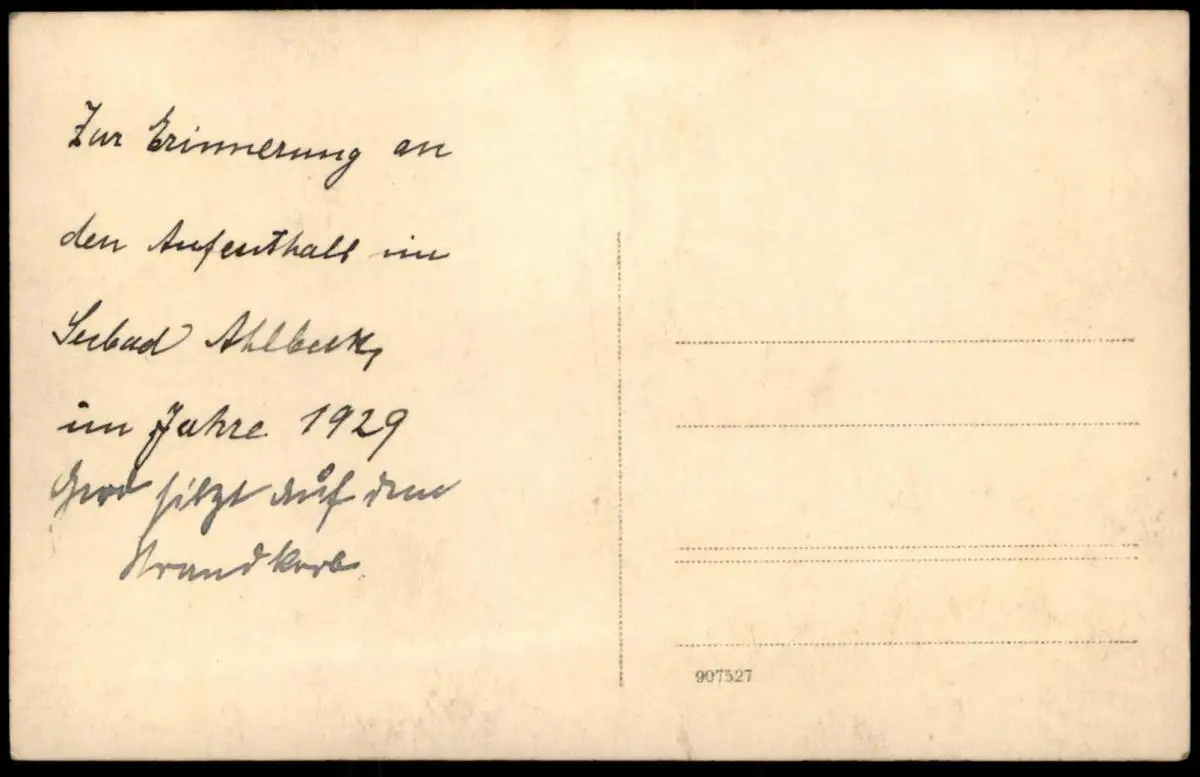 Zur Erinnerung an
den Aufenthalt im
Seebad Ahlbeck,
im Jahre 1929
Gerd sitzt auf dem
Strandkorb
907527